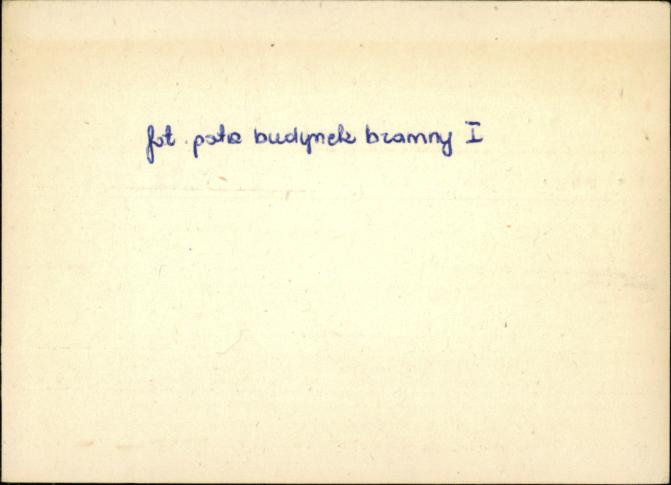 fot. patrz budynek bramny I